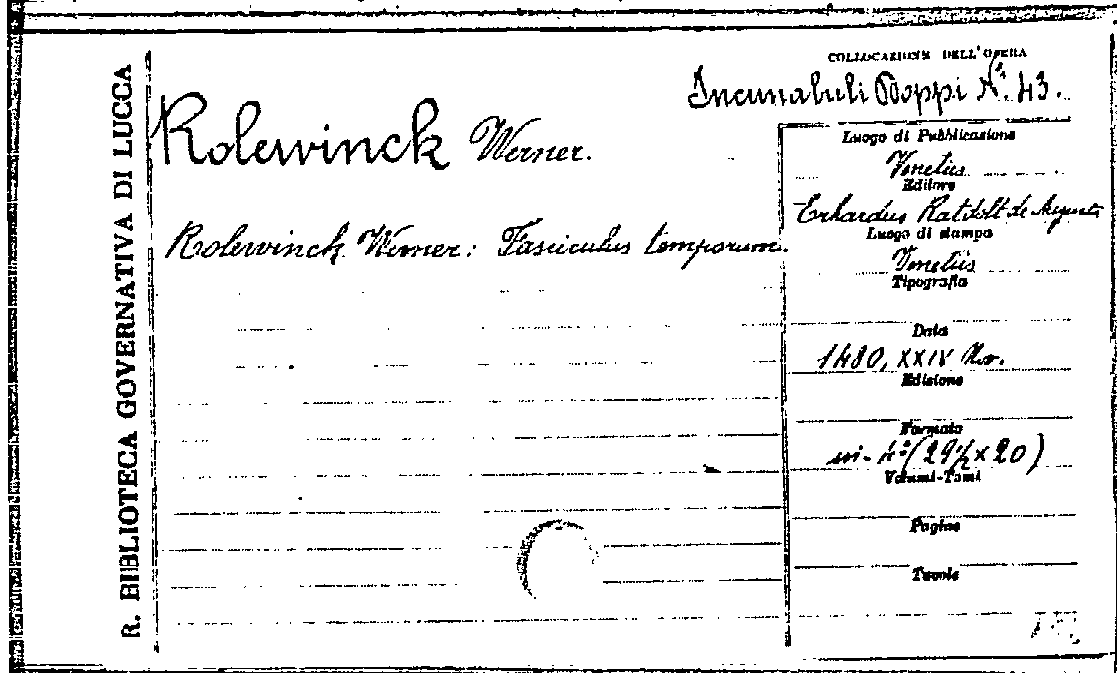 R. BIBLIOTECA GOVERNATIVA DI LUCCA
COLLOCAZIONE DELL'OPERA
Incunabuli Doppi N. 43.
Rolewinck Werner.
Rolewinck Werner: Fasciculus temporum.
Luogo di Pubblicazione
Venetiis
Editore
Erhardus Ratdolt de Augusta
Luogo di stampa
Venetiis
Tipografia
Data
1480, XXIV Nov.
Edizione
Formato
in-4° (29½ x 20)
Volumi-Tomi
Pagine
Tavole